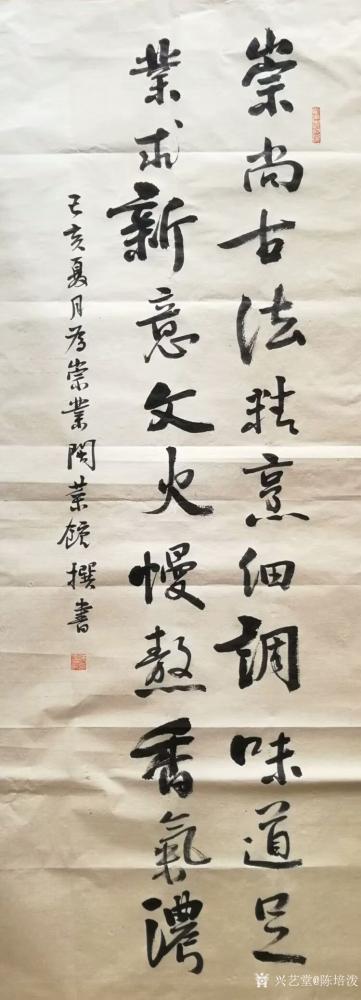 崇尚古法精烹细調味道足
業求新意文火慢熬香氣濃
己亥夏月為崇業閩菜館撰書
兴艺堂@陈培泼